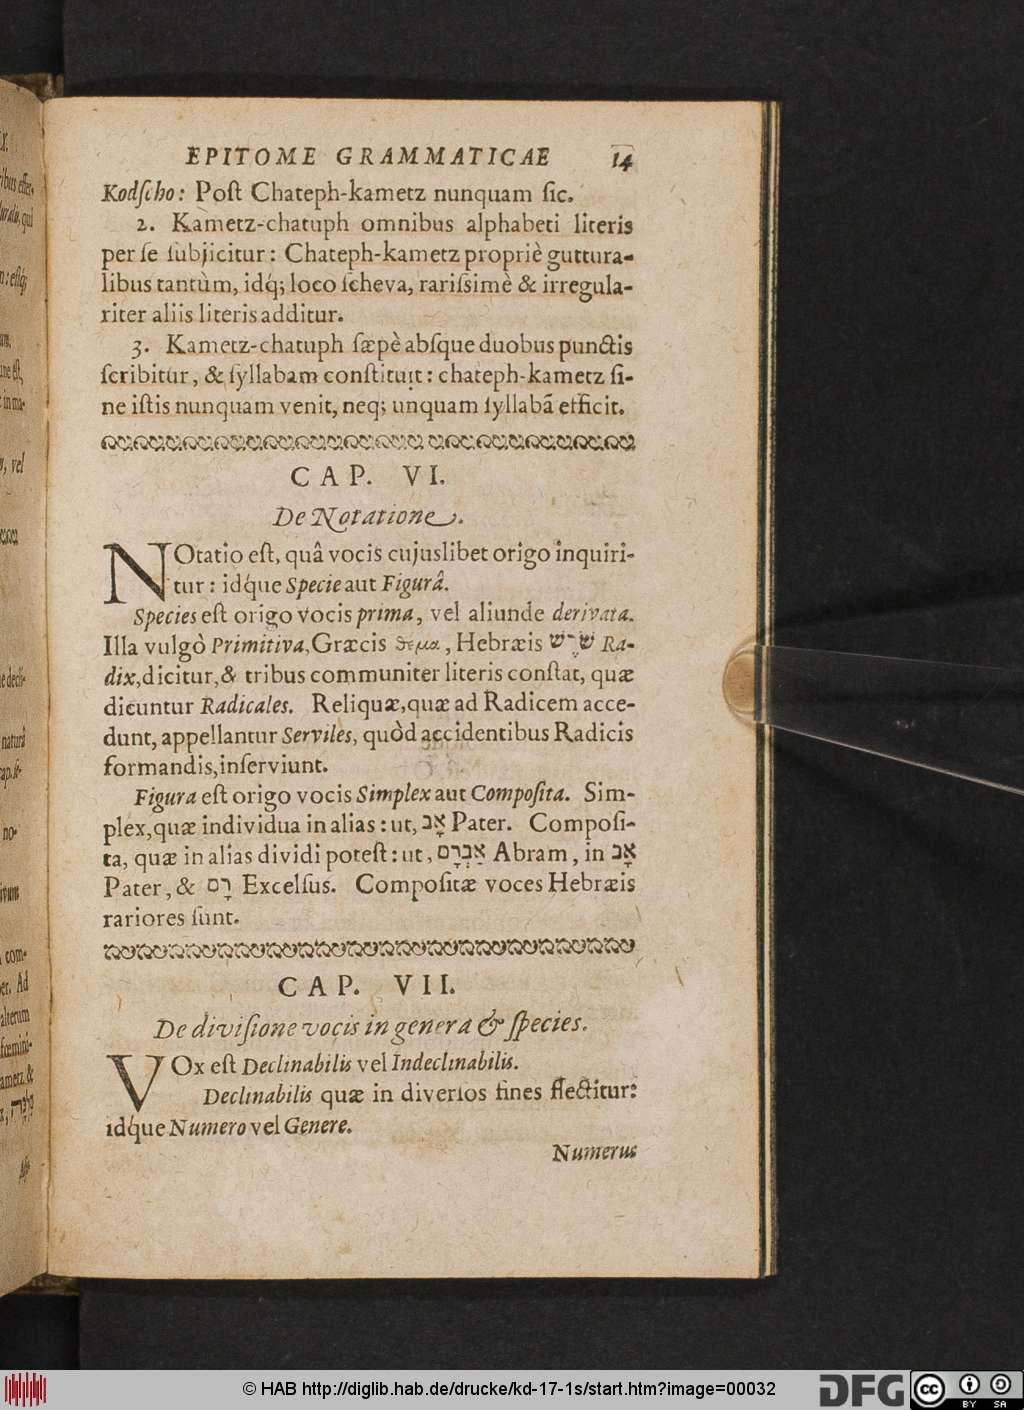 EPITOME GRAMMATICAE 14
Kodſcho: Poſt Chateph-kametz nunquam ſic.
2. Kametz-chatuph omnibus alphabeti literis
per ſe ſubjicitur: Chateph-kametz propriè guttura-
libus tantùm, idq́; loco ſcheva, rariſsimè & irregula-
riter aliis literis additur.
3. Kametz-chatuph ſæpè abſque duobus punctis
ſcribitur, & ſyllabam conſtituit: chateph-kametz ſi-
ne iſtis nunquam venit, neq; unquam ſyllabã efficit.
CAP. VI.
De Notatione.
NOtatio eſt, quâ vocis cujuslibet origo inquiri-
tur: idq́ue Specie aut Figurâ.
Species eſt origo vocis prima, vel aliunde derivata.
Illa vulgò Primitiva, Græcis θεμα, Hebræis שֹׁרֶשׁ Ra-
dix, dicitur, & tribus communiter literis conſtat, quæ
dicuntur Radicales. Reliquæ, quæ ad Radicem acce-
dunt, appellantur Serviles, quòd accidentibus Radicis
formandis, inſerviunt.
Figura eſt origo vocis Simplex aut Compoſita. Sim-
plex, quæ individua in alias: ut, אָב Pater. Compoſi-
ta, quæ in alias dividi poteſt: ut, אַבְרָם Abram, in אָב
Pater, & רָם Excelſus. Compoſitæ voces Hebræis
rariores ſunt.
CAP. VII.
De diviſione vocis in genera & ſpecies.
VOx eſt Declinabilis vel Indeclinabilis.
Declinabilis quæ in diverſos fines flectitur:
idq́ue Numero vel Genere.
Numerus
© HAB http://diglib.hab.de/drucke/kd-17-1s/start.htm?image=00032
DFG
cc BY SA